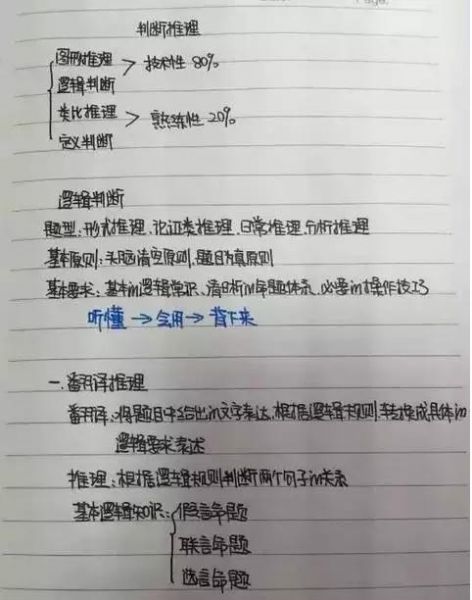 判断推理
图形推理 > 技术性 80%
逻辑判断
类比推理 > 熟练性 20%
定义判断
逻辑判断
题型:形式推理、论证类推理、日常推理、分析推理
基本原则:头脑清空原则、题目为真原则
基本要求:基本的逻辑常识、清晰的解题体系、必要的操作技巧
听懂→会用→背下来
一.翻译推理
翻译:将题目中给出的文字表达,根据逻辑规则,转换成具体的
逻辑要求表述
推理:根据逻辑规则判断两个句子的关系
基本逻辑知识:假言命题
联言命题
选言命题